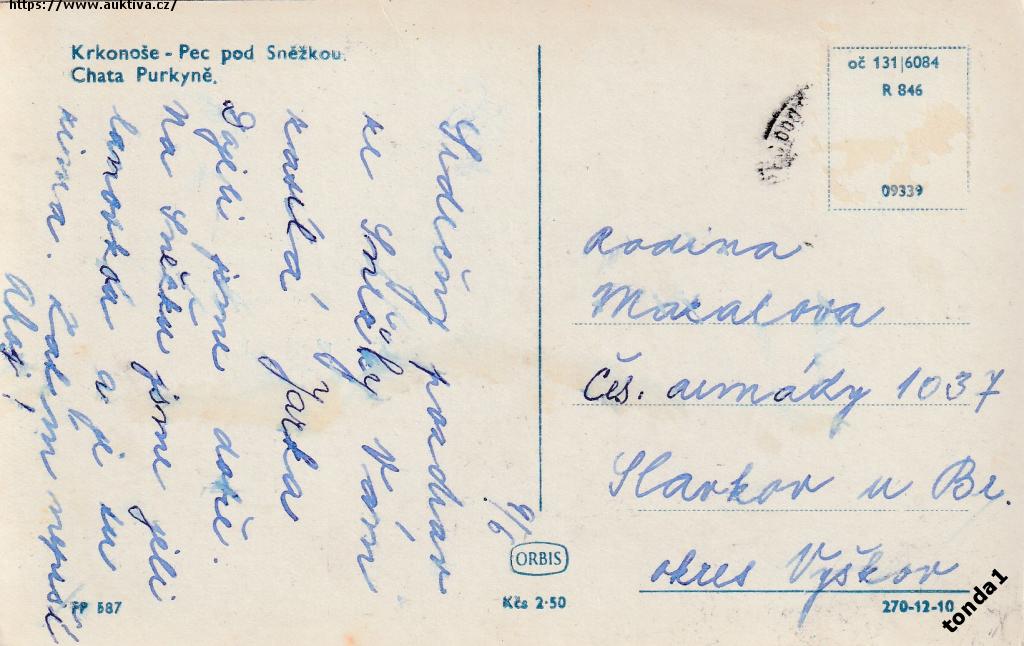 https://www.auktiva.cz/
Krkonoše - Pec pod Sněžkou.
Chata Purkyně.
oč 131|6084
R 846
09339
Srdečný pozdrav
ze Sněžky Vám
zasílá Jarka
Dojeli jsme dobře.
Na Sněžku jsme jeli
lanovkou a je tu
zima. Zatím
Ahoj!
9/6
Rodina
Macalova
Čes. armády 1037
Slavkov u Br.
okres Vyškov
ORBIS
FP 587
Kčs 2·50
270-12-10
tonda1